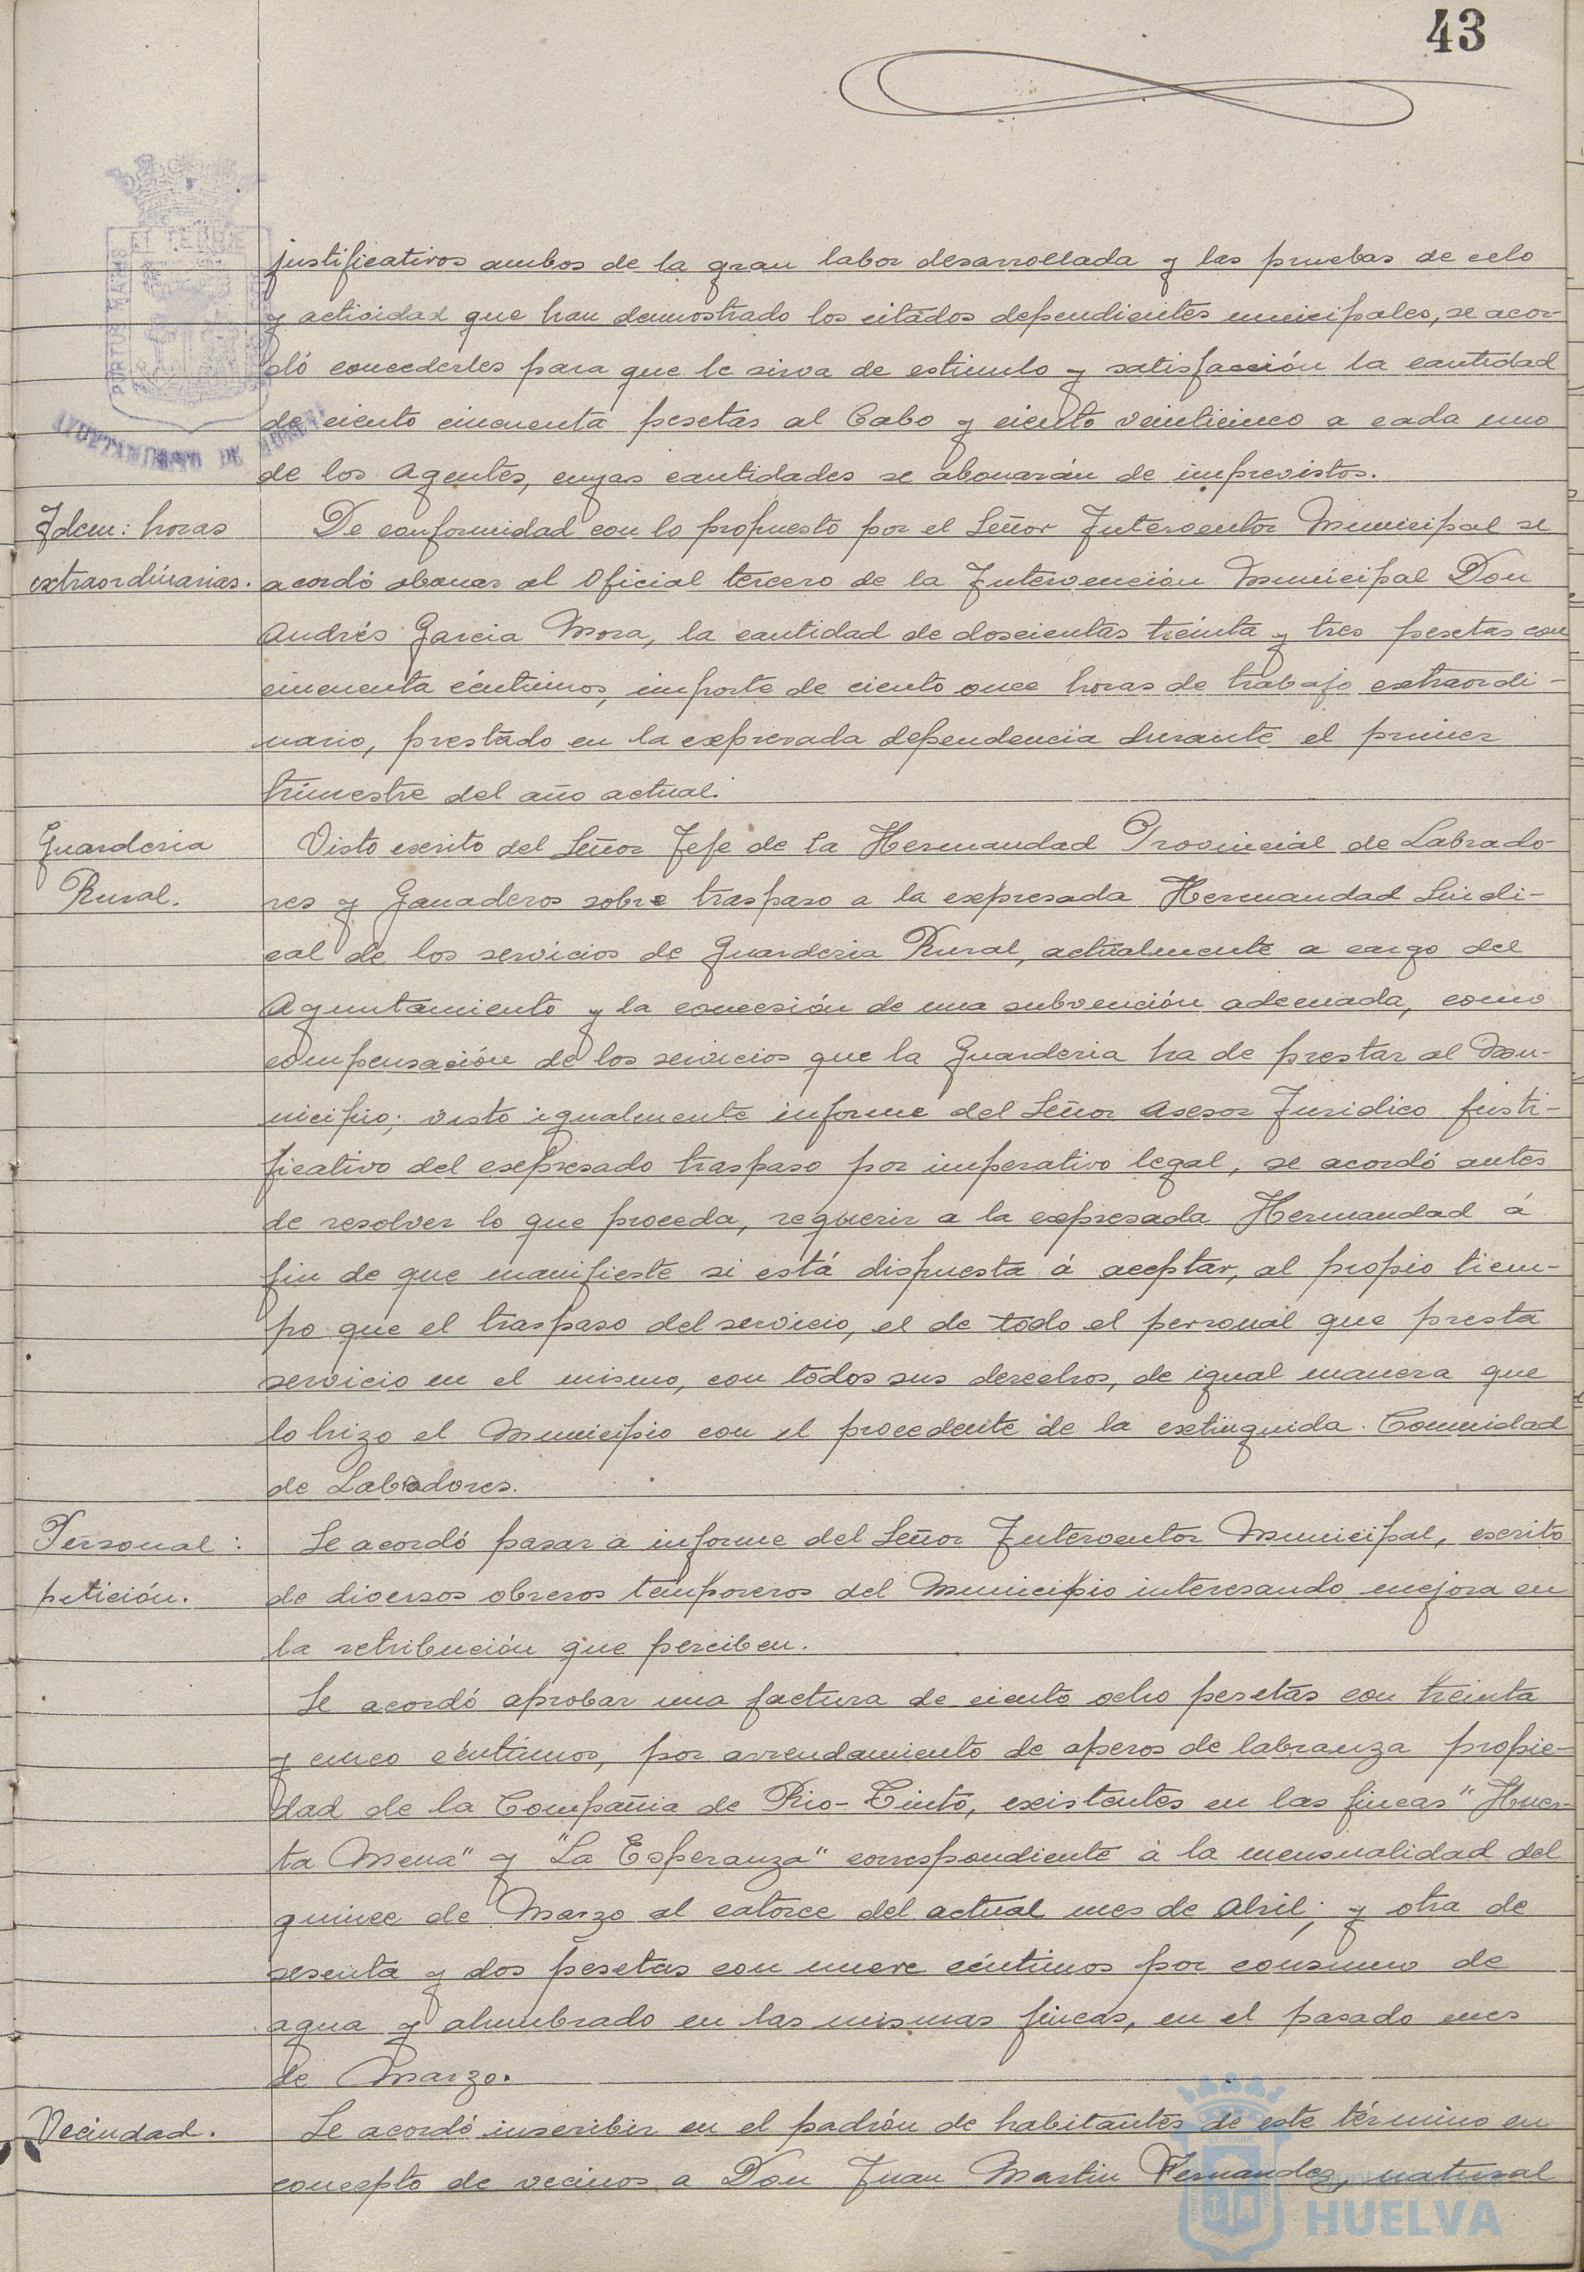 43
ET TERRE
PORTUS MARIS
AYUNTAMIENTO DE HUELVA
justificativos ambos de la gran labor desarrollada y las pruebas de celo
y actividad que han demostrado los citados dependientes municipales, se acor-
dó concederles para que le sirva de estimulo y satisfacción la cantidad
de ciento cincuenta pesetas al Cabo y ciento veinticinco a cada uno
de los Agentes, cuyas cantidades se abonarán de imprevistos.
Idem: horas
extraordinarias.
De conformidad con lo propuesto por el Señor Interventor Municipal se
acordó abonar al Oficial tercero de la Intervención Municipal Don
Andrés Garcia Mora, la cantidad de doscientas treinta y tres pesetas con
cincuenta céntimos, importe de ciento once horas de trabajo extraordi-
nario, prestado en la expresada dependencia durante el primer
trimestre del año actual.
Guarderia
Rural.
Visto escrito del Señor Jefe de la Hermandad Provincial de Labrado-
res y Ganaderos sobre traspaso a la expresada Hermandad Sindi-
cal de los servicios de Guarderia Rural, actualmente a cargo del
Ayuntamiento y la concesión de una subvención adecuada, como
compensación de los servicios que la Guarderia ha de prestar al Mu-
nicipio; visto igualmente informe del Señor Asesor Juridico justi-
ficativo del expresado traspaso por imperativo legal, se acordó antes
de resolver lo que proceda, requerir a la expresada Hermandad á
fin de que manifieste si está dispuesta á aceptar, al propio tiem-
po que el traspaso del servicio, el de todo el personal que presta
servicio en el mismo, con todos sus derechos, de igual manera que
lo hizo el Municipio con el procedente de la extinguida Comunidad
de Labradores.
Personal:
petición.
Se acordó pasar a informe del Señor Interventor Municipal, escrito
de diversos obreros temporeros del Municipio interesando mejora en
la retribución que perciben.
Se acordó aprobar una factura de ciento ocho pesetas con treinta
y cinco céntimos, por arrendamiento de aperos de labranza propie-
dad de la Compañia de Rio-Tinto, existentes en las fincas "Huer-
ta Mena" y "La Esperanza" correspondiente á la mensualidad del
quince de Marzo al catorce del actual mes de Abril; y otra de
sesenta y dos pesetas con nueve céntimos por consumo de
agua y alumbrado en las mismas fincas, en el pasado mes
de Marzo.
Vecindad.
Se acordó inscribir en el padrón de habitantes de este término en
concepto de vecinos a Don Juan Martin Fernandez, natural
HUELVA